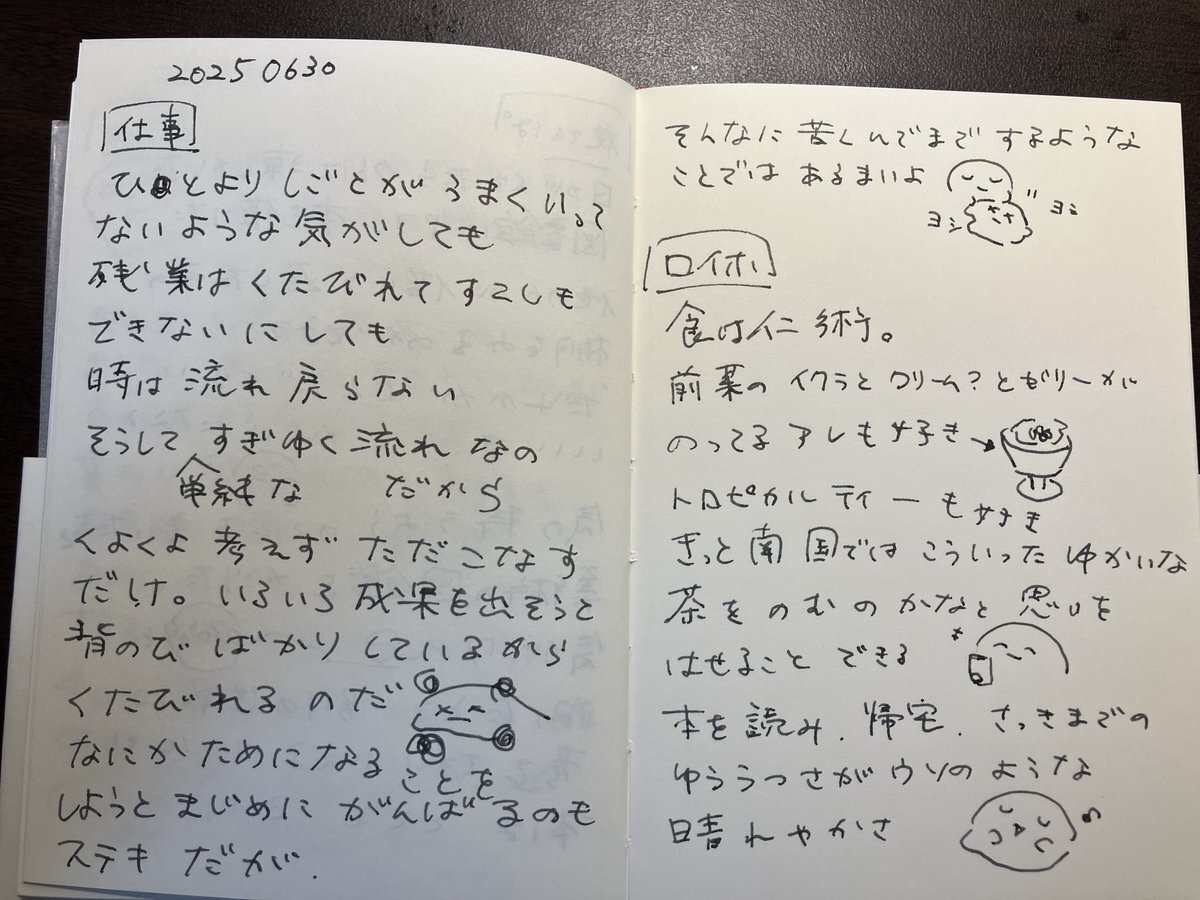 20250630
仕事
ひとよりしごとがうまくいって
ないような気がしても
残業はくたびれてすこしも
できないにしても
時は流れ戻らない
そうしてすぎゆく流れなの
単純な だから
くよくよ考えずただこなす
だけ。いろいろ成果を出そうと
背のびばかりしているから
くたびれるのだ
なにかためになることを
しようとまじめにがんばるのも
ステキだが、
そんなに苦しんでまでするような
ことではあるまいよ
ヨシ ヨシ
ロイホ
食は仁術。
前菜のイクラとクリーム?とゼリーが
のってるアレも好き
トロピカルティーも好き
きっと南国ではこういったゆかいな
茶をのむのかなと思いを
はせることできる
本を読み、帰宅、さっきまでの
ゆううつさがウソのような
晴れやかさ